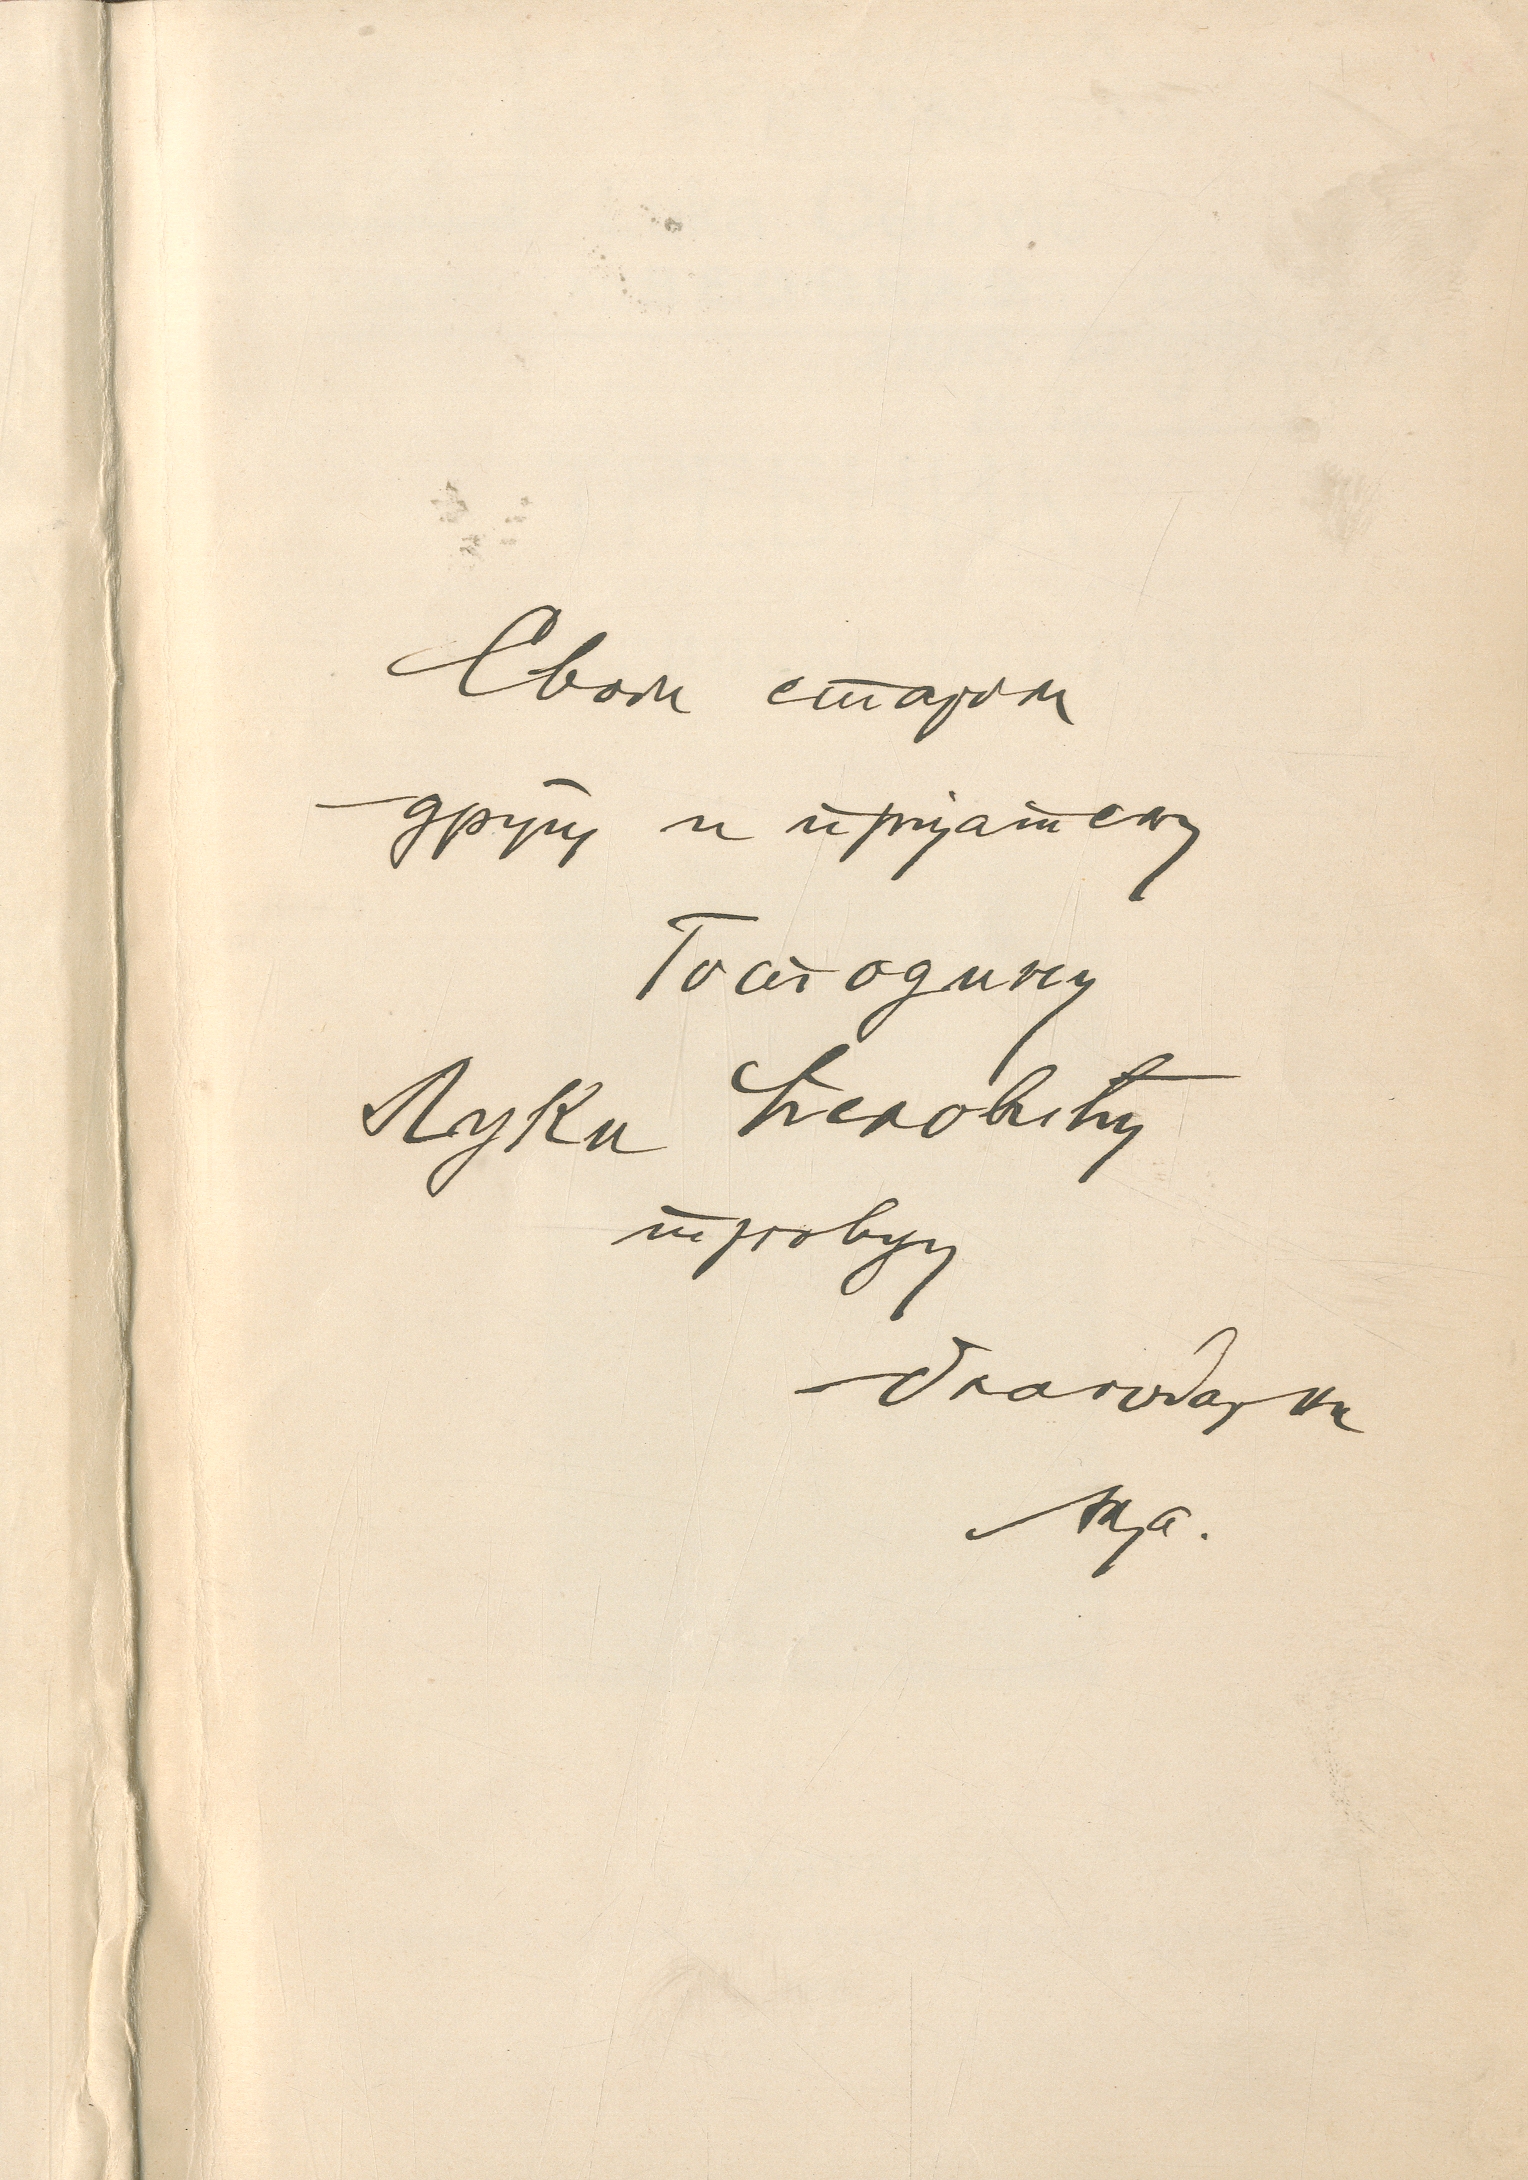 Свом старом
другу и пријатељу
Господину
Луки Ћеловићу
трговцу
благодарни